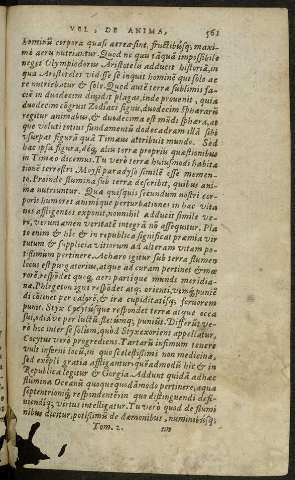 VEL, DE ANIMA, 561
hominũ corpora quasi aerea sint, fructibúsq; maxi-
mè aeru nutriantur. Quod ne quis tãquã impossibile
neget Olympiodorus Aristotelis adducit historiã, in
qua Aristoteles vidisse se inquit hominẽ qui solo ae-
re nutriebatur & sole. Quod autẽ terra sublimis fa-
ciẽ in duodecim digidit plagas, inde prouenit, quia
duodecim cõgruit Zodiaci signis, duodecim sphærarũ
regitur animabus, & duodecima est mũdi sphæra, ea
que voluti intius fundamentũ dodecadram illã sibi
vsurpat figurã quã Timæus attribuit mundo. Sed
hac ipsa figura, dèq; aliis terra propriis quæstionibus
in Timæo dicemus. Tu verò terra huiusmodi habita
tionẽ terrestri Moysi paradyso similẽ esse memen-
to. Proinde flumina sub terra describit, quibus ani-
ma nutriuntur. Qua quosquis secundum nostri cor-
poris humores animique perturbationes in hac vita
nos affligentes exponit, nonnihil adducit simile ve-
ro, veruntamen veritatẽ integrã nõ assequitur. Pla
to enim & hîc & in republica significat præmia vir
tutum & supplicia vitiorum ad alteram vitam po-
tissimum pertinere. Acharo igitur sub terra flumen
locus est purgatorius, atque ad curam pertinet & mœ
rorẽ, respõdet quoq; aeri partíque mundi meridia-
na. Phlegeton igni respõdet atq; orienti, vimq; punẽ
di cõtinet per calorẽ, & ira cupiditatisq; feruorem
punit. Styx Cocytúsq; que respondet terræ atque occa
sui, odia ve per luctũ flecúmq; puniũt. Differũt ve-
rò hæc inter se solùm, quòd Styx exorient appellatur,
Cocytus verò progrediens. Tartarũ infimum tenere
vult inferni locũ, in quo sceletissimi non medicinæ,
sed exẽpli gratia affligantur quẽadmodũ hîc & in
Republica legitur & Gorgia. Addunt quidã adhæc
flumina Oceanũ quoque quodãmodo pertinere, aquæ
septentrioniq; respondentẽ in quo distinguendi desi-
niendiq; vertus intelligatur. Tu verò quod de flumi
nibus dicitur, potissimũ de dæmonibus, numinibusq;
Tom. 2.